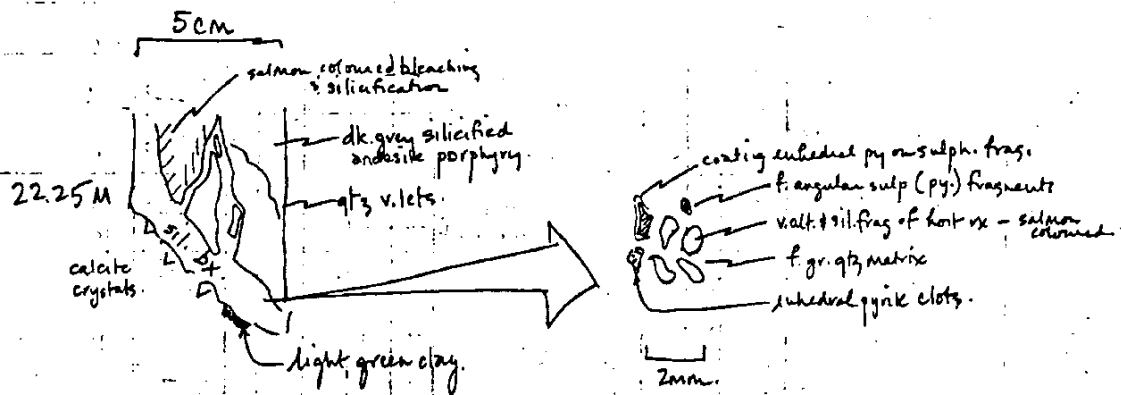 5cm
salmon coloured bleaching
& silicification
dk. grey silicified
andesite porphyry.
22.25M
qtz v.lets.
sil.
calcite
crystals.
light green clay.
coating euhedral py on sulph. frag.
f. angular sulp (py.) fragments
v. alt. & sil. frag of host rx – salmon
coloured
f. gr. qtz matrix
euhedral pyrite clots.
2mm.